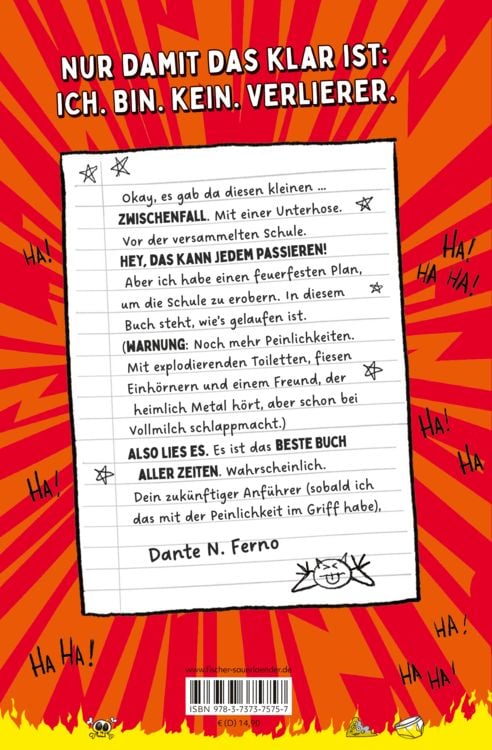 NUR DAMIT DAS KLAR IST:
ICH. BIN. KEIN. VERLIERER.
Okay, es gab da diesen kleinen …
ZWISCHENFALL. Mit einer Unterhose.
Vor der versammelten Schule.
HEY, DAS KANN JEDEM PASSIEREN!
Aber ich habe einen feuerfesten Plan,
um die Schule zu erobern. In diesem
Buch steht, wie's gelaufen ist.
(WARNUNG: Noch mehr Peinlichkeiten.
Mit explodierenden Toiletten, fiesen
Einhörnern und einem Freund, der
heimlich Metal hört, aber schon bei
Vollmilch schlappmacht.)
ALSO LIES ES. Es ist das BESTE BUCH
ALLER ZEITEN. Wahrscheinlich.
Dein zukünftiger Anführer (sobald ich
das mit der Peinlichkeit im Griff habe),
Dante N. Ferno
HA!
HA!
HA HA!
HA!
HA
HA!
HA HA!
HA!
HA HA!
www.fischer-sauerlaender.de
ISBN 978-3-7373-7575-7
€ (D) 14,90